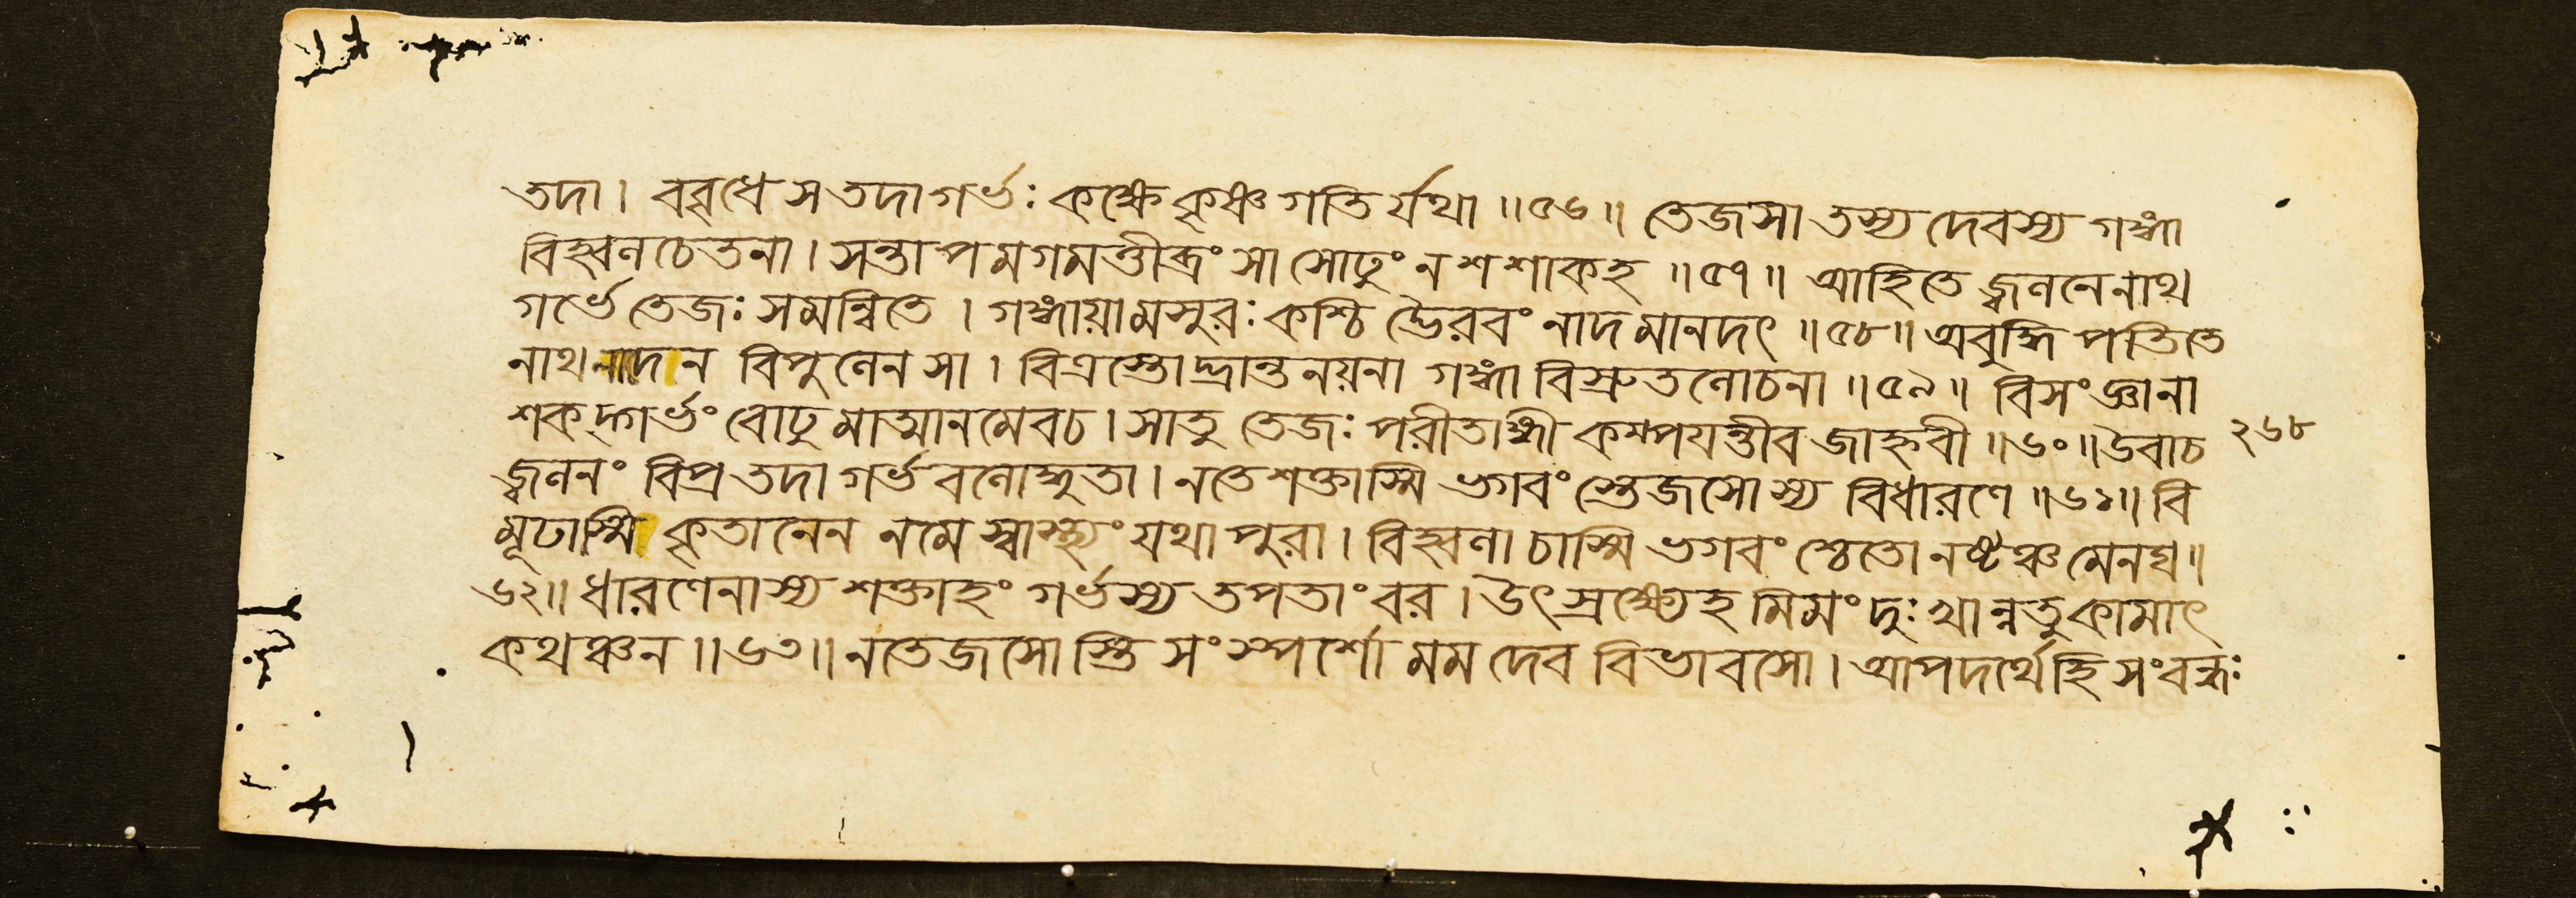 তদা। ববৃধে স তদা গর্ভঃ কক্ষে কৃষ্ণগতির্যথা॥৫৬॥ তেজসা তস্য দেবস্য গঙ্গা
বিহ্বলচেতনা। সন্তাপমগমত্তীব্রং সা সোঢ়ুং ন শশাক হ॥৫৭॥ আহিতে জ্বলনেনাথ
গর্ভে তেজঃসমন্বিতে। গঙ্গায়ামসুরঃ কশ্চিদ্ভৈরবং নাদমানদৎ॥৫৮॥ অবুদ্ধি পতিতে
নাথ নাদেন বিপুলেন সা। বিত্রস্তোদ্ভ্রান্তনয়না গঙ্গা বিস্রুতলোচনা॥৫৯॥ বিসংজ্ঞা না
শকদ্গর্ভং বোঢ়ুমাত্মানমেব চ। সা তু তেজঃপরীতাঙ্গী কম্পযন্তীব জাহ্নবী॥৬০॥ উবাচ
২৬৮
জ্বলনং বিপ্র তদা গর্ভবলোদ্ধুতা। ন তে শক্তাস্মি ভগবংস্তেজসোস্য বিধারণে॥৬১॥ বি
মূঢাস্মি কৃতানেন ন মে স্বাস্থ্যং যথা পুরা। বিহ্বলা চাস্মি ভগবংশ্চেতো নষ্টঞ্চ মেনঘ॥
৬২॥ ধারণেনাস্য শক্তাহং গর্ভস্য তপতাং বর। উৎস্রক্ষ্যেহমিমং দুঃখান্নতু কামাৎ
কথঞ্চন॥৬৩॥ ন তেজসোস্তি সংস্পর্শো মম দেব বিভাবসো। আপদর্থে হি সংবন্ধঃ